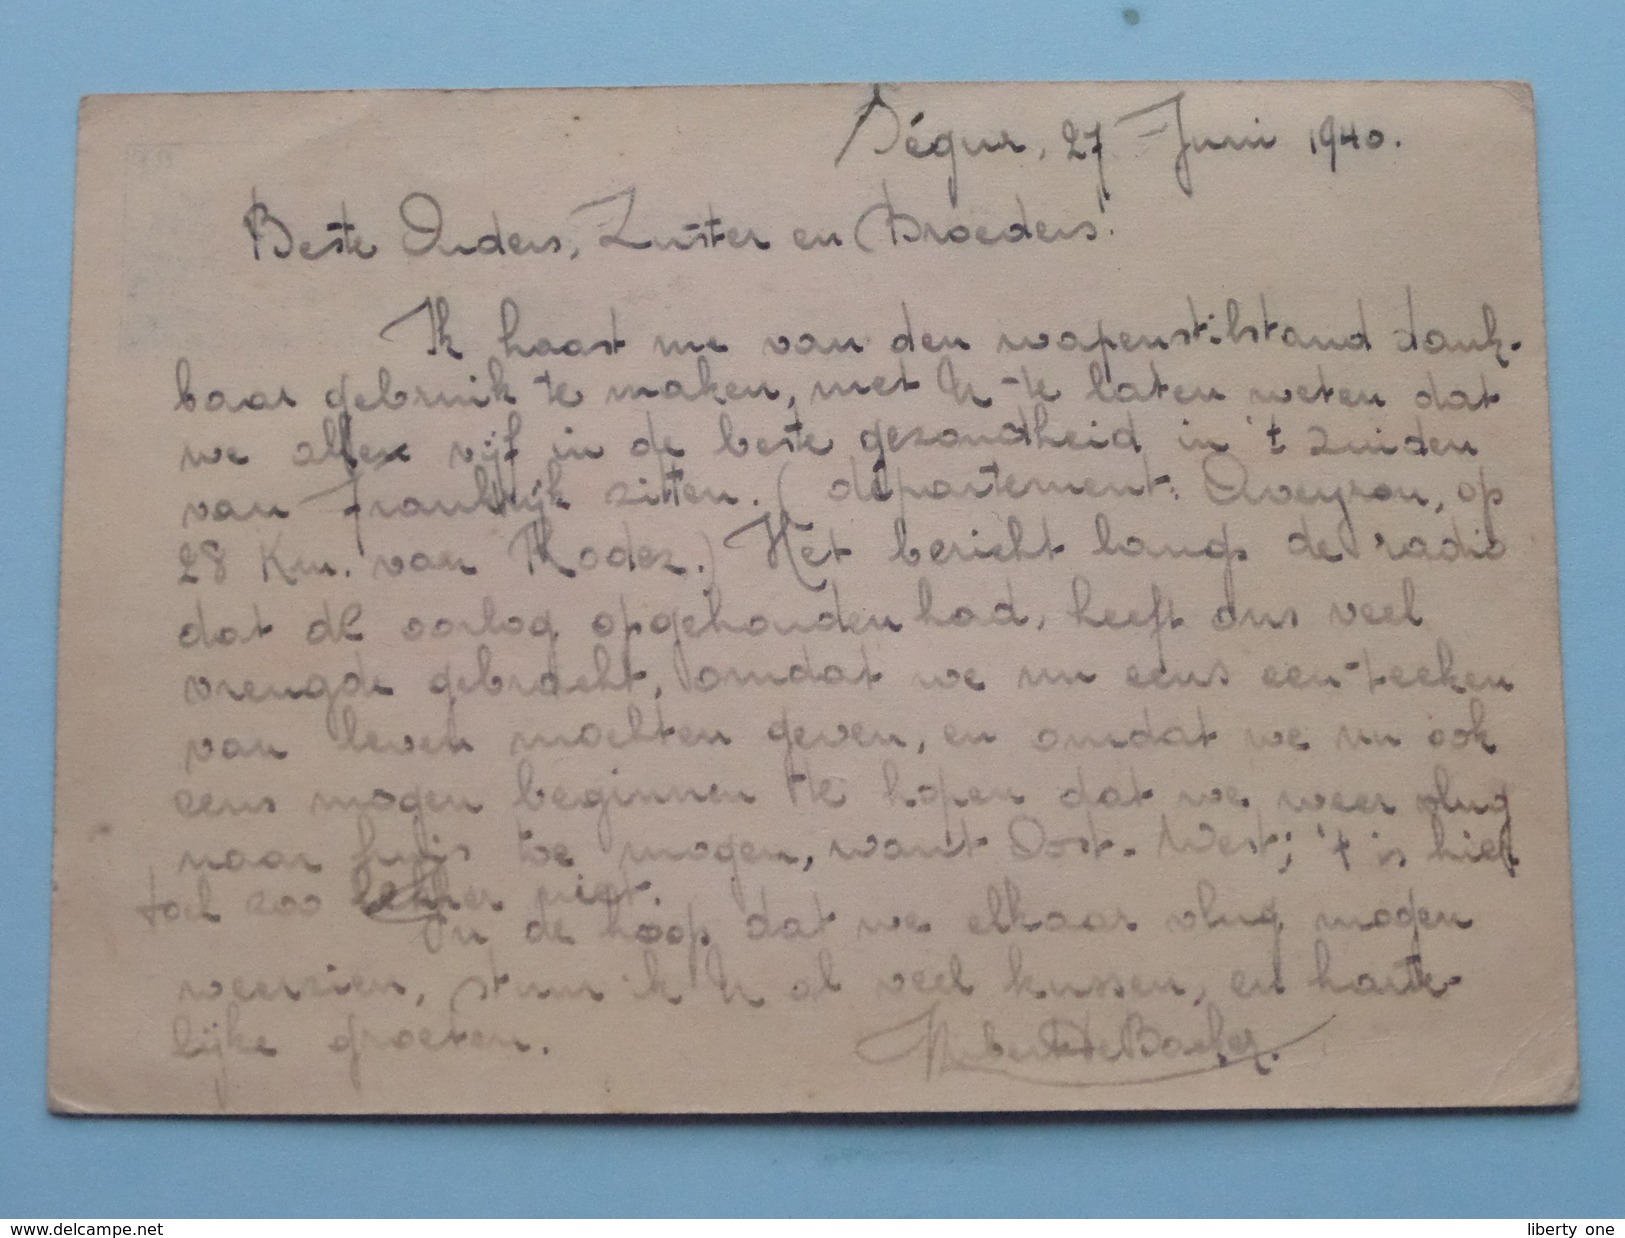 Ségur, 27 Juni 1940.
Beste Ouders, Zuster en Broeders!
Ik haast me van den wapenstilstand dank-
baar gebruik te maken, met U te laten weten dat
we allex vijf in de beste gezondheid in 't zuiden
van Frankrijk zitten. (département: Aveyron, op
28 Km. van Rodez.) Het bericht langs de radio
dat de oorlog opgehouden had, heeft ons veel
vreugde gebracht, omdat we nu eens een teeken
van leven mochten geven, en omdat we nu ook
eens mogen beginnen te hopen dat we weer vlug
naar huis toe mogen, want Oost-West; 't is hier
toch zoo lekker niet.
In de hoop dat we elkaar vlug mogen
weerzien, stuur ik U al veel kussen, en harte-
lijke groeten.
Hubert De Backer.
www.delcampe.net
liberty one